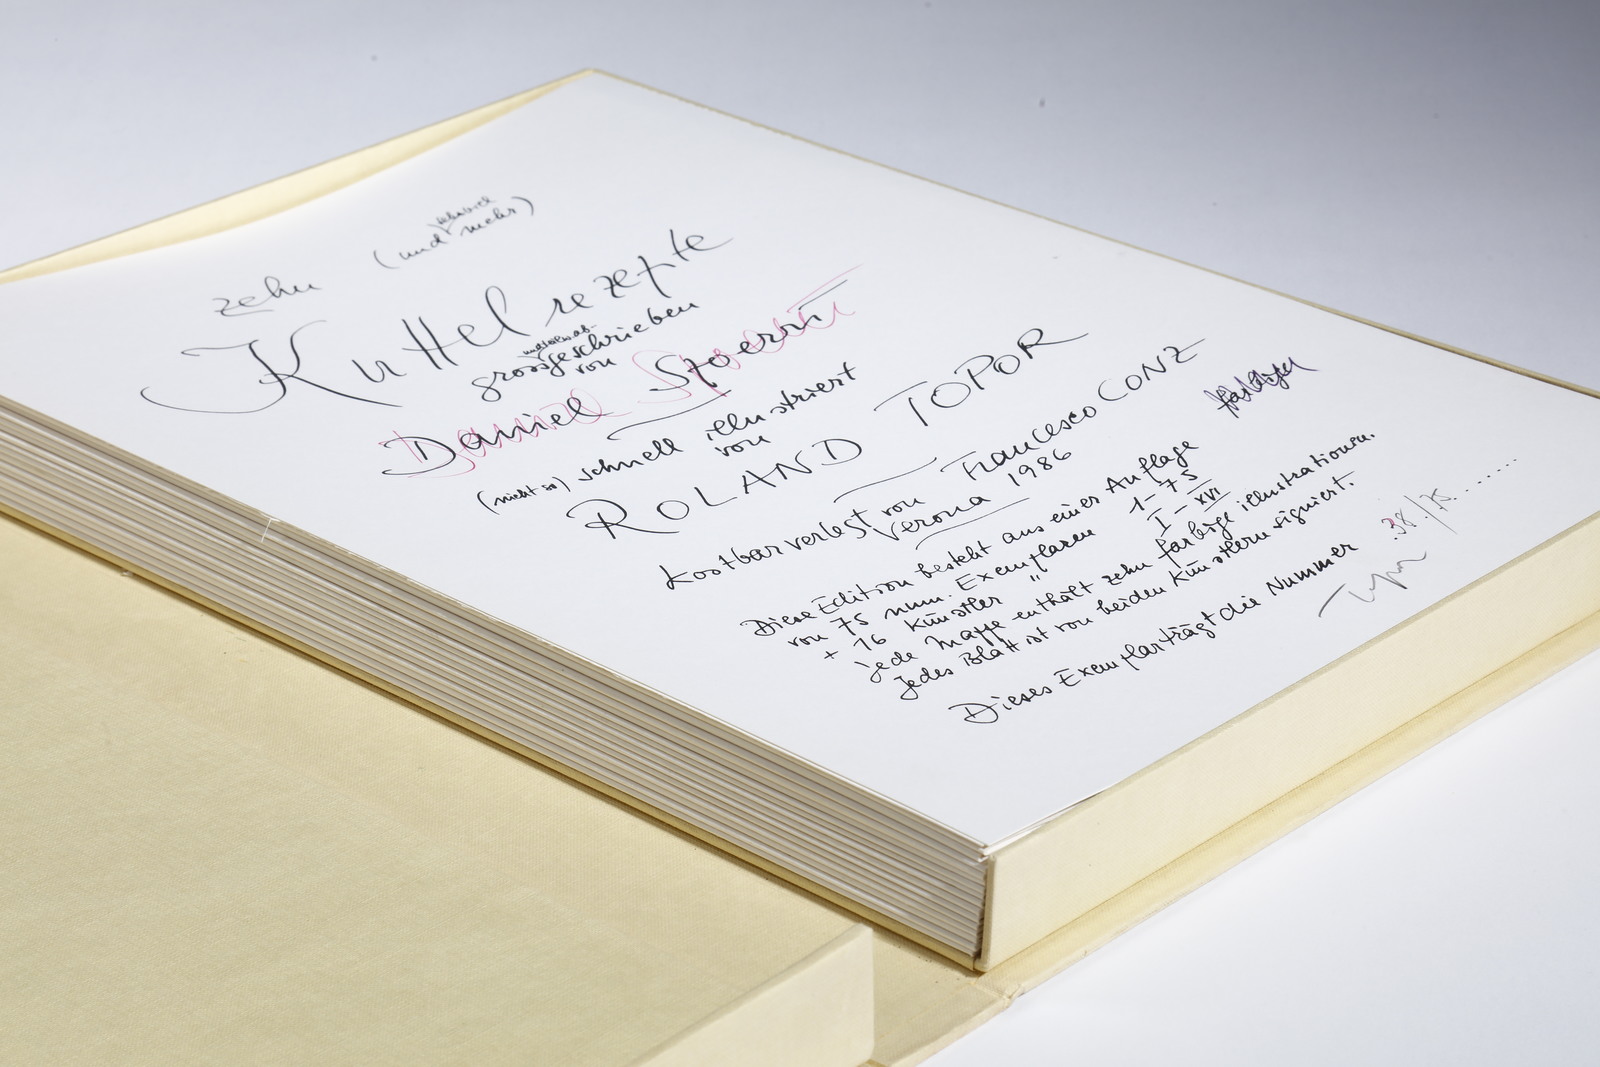 zehn (und mehr)
Kuttelrezepte
grossgeschrieben
von
Daniel Spoerri
(nicht so) schnell illustriert
von
ROLAND TOPOR
kostbar verlegt von Francesco CONZ
Verona 1986
Diese Edition besteht aus einer Auflage
von 75 num. Exemplaren 1-75
+ 16 Künstler " I-XVI
jede Mappe enthält zehn farbige illustrationen.
jedes Blatt ist von beiden Künstlern signiert.
Dieses Exemplar trägt die Nummer 38/75
Topor